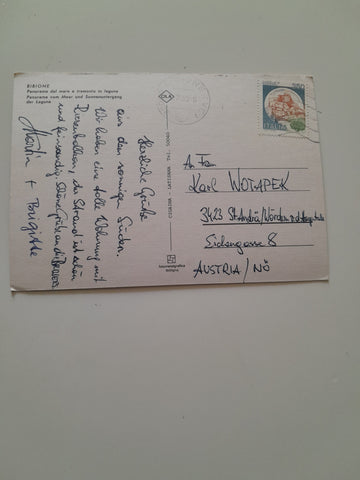 BIBIONE
Panorama dal mare e tramonto in laguna
Panorama vom Meer und Sonnenuntergang
der Lagune
Herzliche Grüße
aus dem sonnigen Süden.
Wir haben eine tolle Wohnung mit
Riesenbalkon, der Strand ist schön
und feinsandig. Schöne Grüße an die
Martin + Brigitte
ITALIA
An Fam.
Karl WOTAPEK
3423 St. Andrä/Wördern
Siebengasse 8
AUSTRIA/NÖ